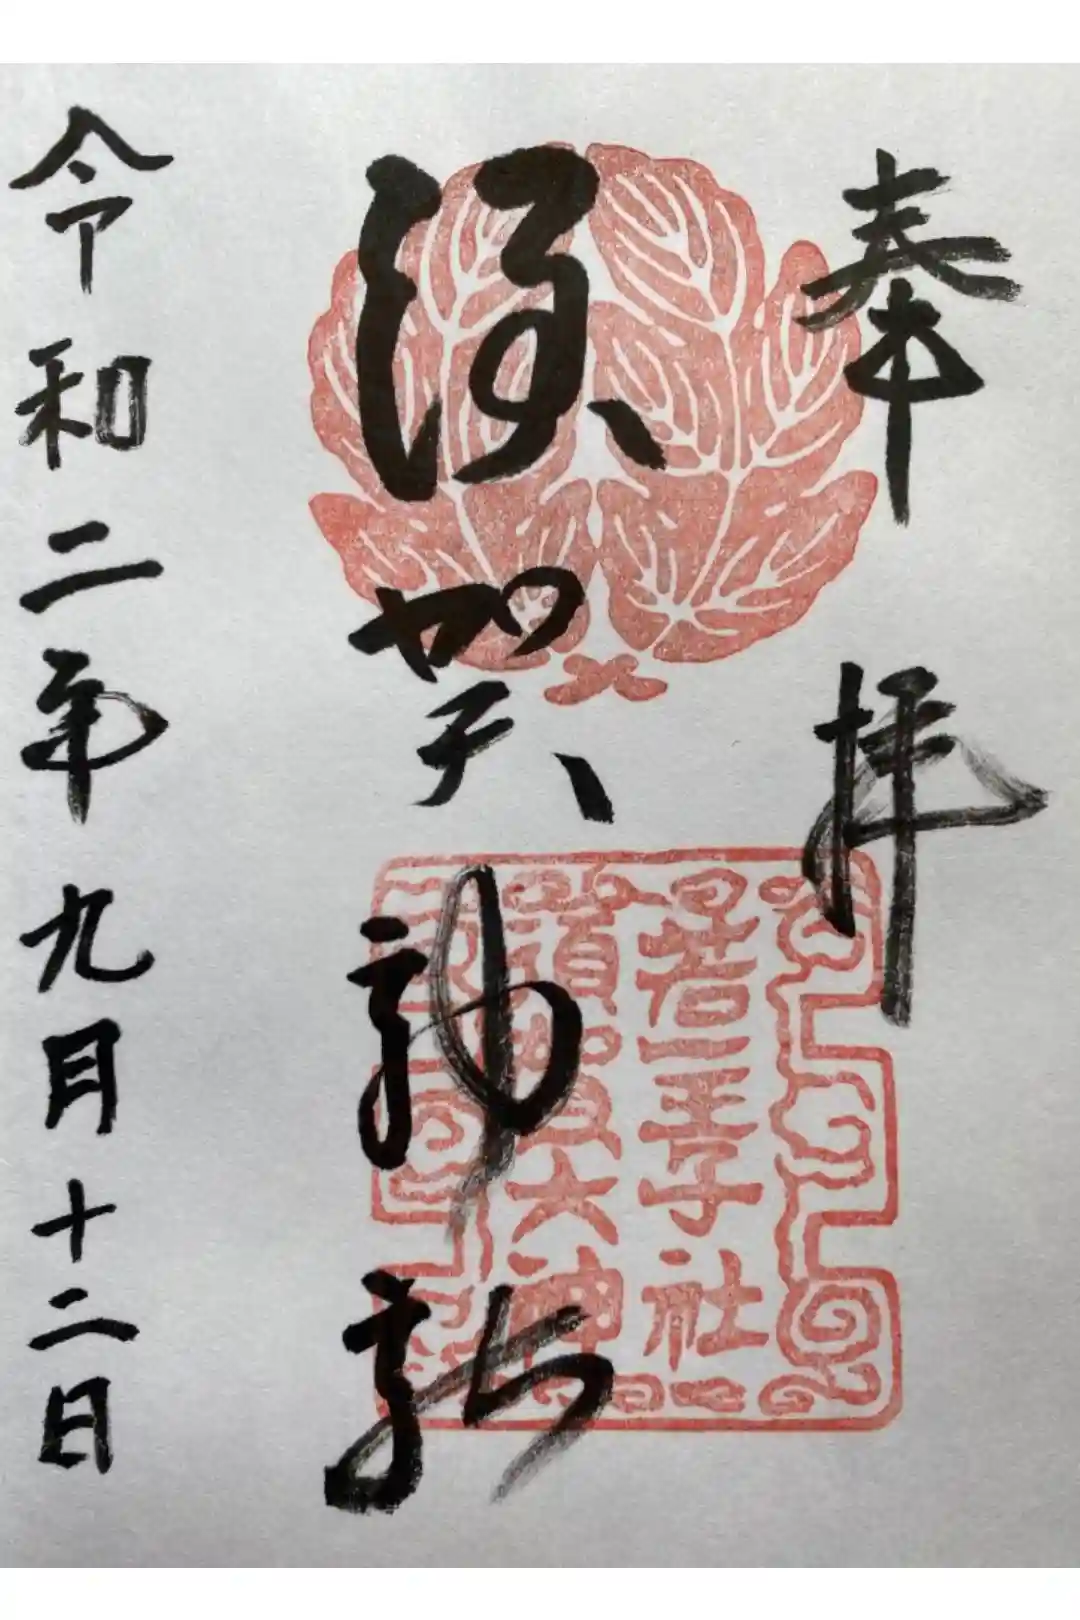 奉拝
須賀神社
若一王子社
須賀大神
令和二年九月十二日